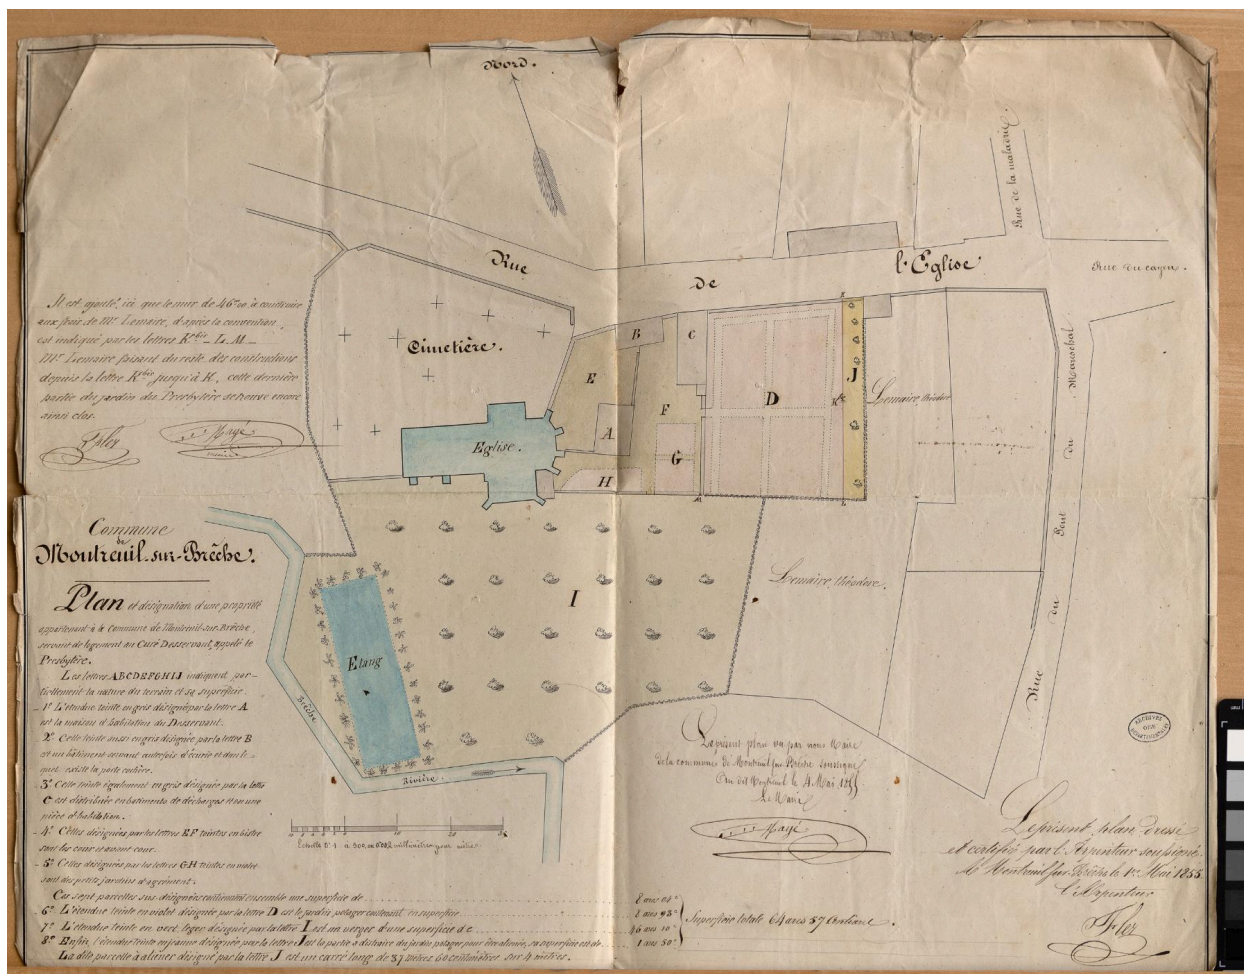 Nord.
Rue
de
l'Eglise
Rue de la maladrie
Rue du cayin.
Il est ajouté, ici que le mur de 46m 00 à construire
aux frais de Mr. Lemaire, d'après la convention,
est indiqué par les lettres K bis – L. M. –
Mr Lemaire faisant du reste des constructions
depuis la lettre K bis jusqu'à K, cette dernière
partie du jardin du Presbytère se trouve encore
ainsi clos.
Hayé
Cimetière.
B
C
E
D
J
K bis
Lemaire, théodore
F
A
Eglise.
G
H
M
L
Rue du Pont du Maréchal
Commune
de
Montreuil-sur-Brêche.
Plan et désignation d'une propriété
appartenant à la Commune de Montreuil-sur-Brêche,
servant de logement au Curé Desservant, appelé le
Presbytère.
Les lettres ABCDEFGHIJ indiquent par-
tiellement la nature du terrain et sa superficie.
1o L'étendue teinte en gris désignée par la lettre A
est la maison d'habitation du Desservant.
2o Celle teinte aussi en gris désignée par la lettre B
est un bâtiment servant autrefois d'écurie et dans le
quel existe la porte entière.
3o Celle teinte également en gris désignée par la lettre
C est distribuée en batiments de décharges et en une
pièce d'habitation.
4o Celles désignées par les lettres EF teintes en bistre
sont les cour et avant cour.
5o Celles désignées par les lettres GH teintes en violet
sont des petits jardins d'agrément.
Ces cent parcelles sus désignées contiennent ensemble une superficie de
6o L'étendue teinte en violet désignée par la lettre D est le jardin potager contenant en superficie
7o L'étendue teinte en vert léger désignée par la lettre I est un verger d'une superficie de
8o Enfin, l'étendue teinte en jaune désignée par la lettre J est la partie à distraire du jardin potager, pour être aliénée, sa superficie est de
La dite parcelle à aliéner désigné par la lettre J est un carré long de 37 mètres 60 centimètres sur 4 mètres.
8 ares
8 ares 93c
46 ares 10c
1 are 50c
Superficie totale 64 ares 57 Centiare.
Lemaire, théodore.
I
Etang
Brêche
Rivière.
10
20
30
Echelle de 1 à 500, ou 0.002 millimètres pour mètre
Le présent plan vu par nous Maire
de la commune de Montreuil sur Brêche soussigné
Montreuil le 4 Mai 1855
Le Maire
Hayé
ARCHIVES
DÉPARTEMENTALES
Le présent plan dressé
et certifié par l'Arpenteur soussigné
à Montreuil sur Brêche le 1er Mai 1855
L'Arpenteur